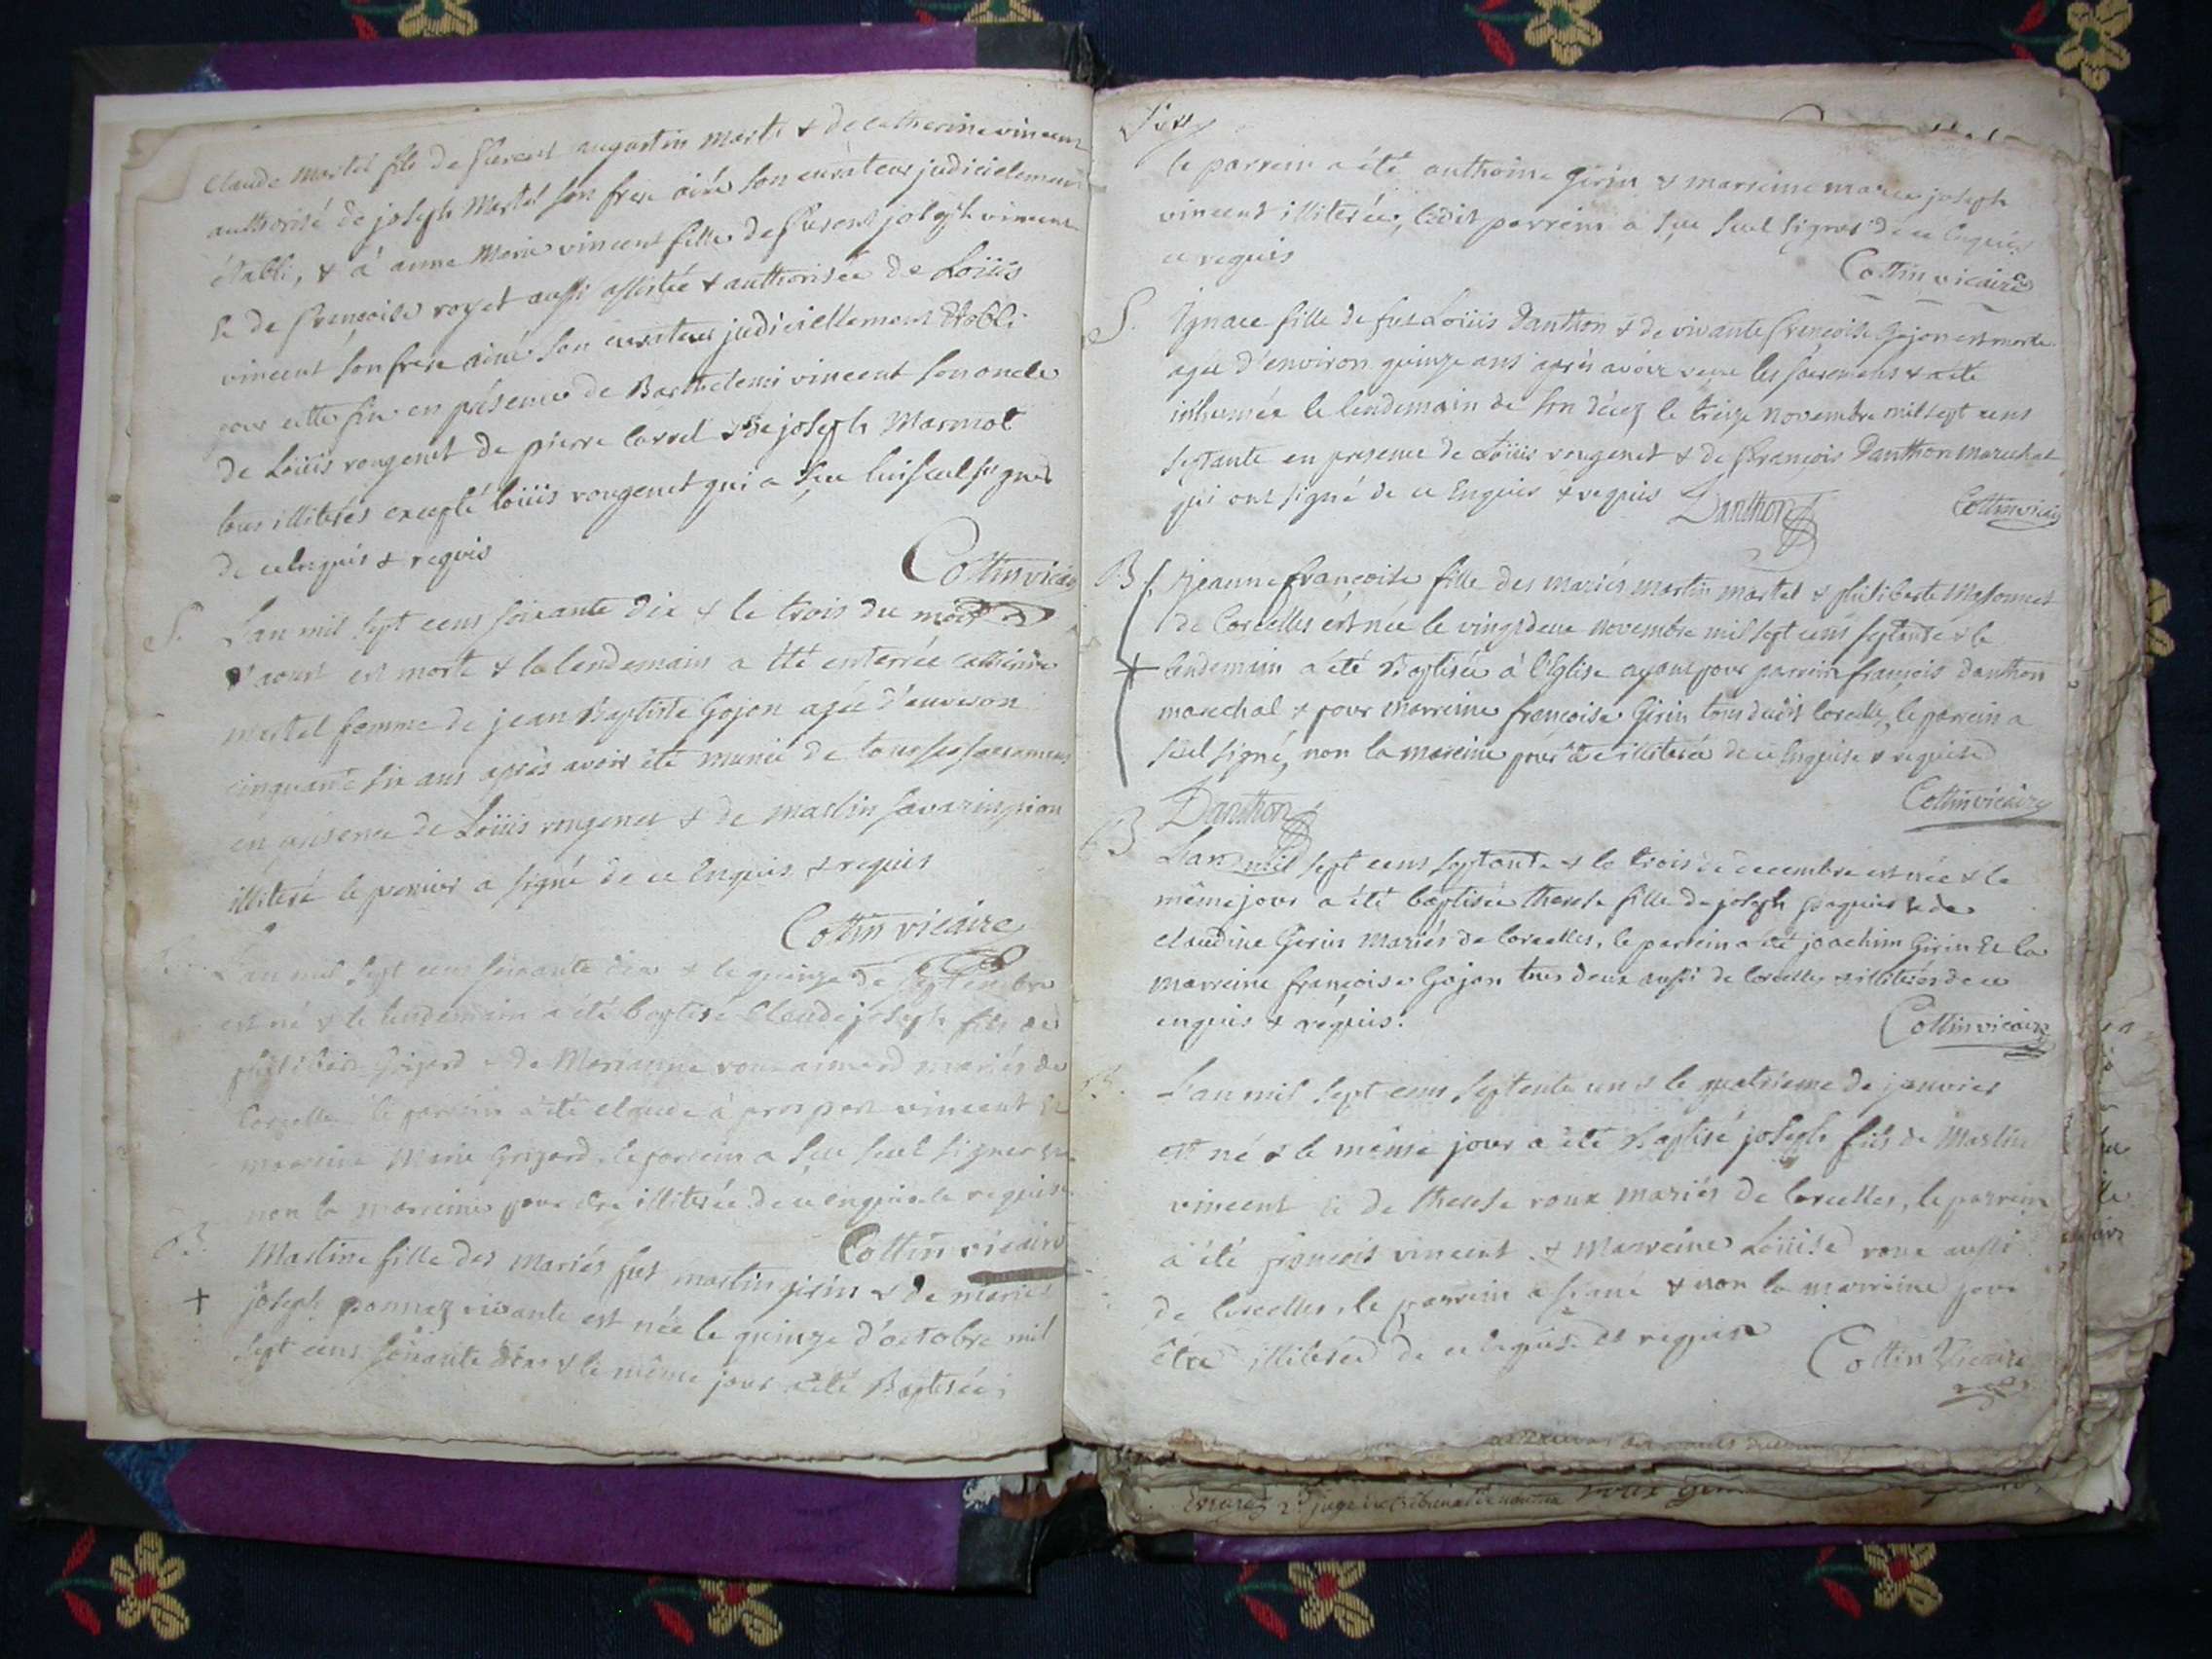 Claude Martel fils de augustin Martel & de catherine vincent
authorisé de joseph Martel son frere ainé son curateur judicielement
établi, & a anne Marie vincent fille de joseph vincent
& de francoise royet aussi assistée & authorisée de Loüis
vincent son frere ainé son curateur judiciellement Etabli
pour cette fin en présence de Barthelemi vincent son oncle
de Loüis rougenet de pierre & de joseph Marmot
tous illiterés excepté loüis rougenet qui a sçu lui seul signer
de ce enquis & requis
Cottin vicaire
S. L'an mil sept cens soixante dix & le trois du mois
d'aoust est morte & le lendemain a été enterrée catherine
martel femme de jean Baptiste Gojon agée d'environ
cinquante six ans après avoir été munie de tous ses sacremens
en présence de Loüis rougenet & de martin savarin pion
illiteré le premier a signé de ce enquis & requis
Cottin vicaire
L'an mil sept cens soixante dix & le quinze de septembre
est né & le lendemain a été baptisé Claude joseph fils de
philibert Grigard & de Marianne mariés de
Corcelles le parrein a été claude prosper vincent &
marreine Marie Grigard, le parrein a sçu seul signer &
non la marreine pour être illiterée de ce enquise & requise
Cottin vicaire
B. Martine fille des mariés fut martin girin & de marie
+ joseph ponnaz vivante est née le quinze d'octobre mil
sept cens soixante dix & le même jour a été Baptisée;
le parrein a été anthoine Girin & marreine marie joseph
vincent illiterée, ledit parrein a sçu seul signer de ce enquis
& requis
Cottin vicaire
S. Ignace fille de fut Loüis Danthon & de vivante françoise Gojon est morte
agée d'environ quinze ans après avoir reçu les sacremens & a été
inhumée le lendemain de son décez le treize novembre mil sept cens
septante en presence de Loüis rougenet & de François Danthon marechal
qui ont signé de ce Enquis & requis Danthon Cottin vicaire
B. jeanne françoise fille des mariés martin martel & philiberte Massonnet
de Corcelles est née le vingt deux novembre mil sept cens septante & le
+ lendemain a été Baptisée à l'Eglise ayant pour parrein françois Danthon
marechal & pour marreine françoise Girin tous deux de Corcelles, le parrein a
seul signé, non la marreine pour être illiterée de ce Enquise & requise
Cottin vicaire
Danthon
B L'an mil sept cens septante & le trois de decembre est née & le
même jour a été baptisée therese fille de joseph paquier & de
claudine Girin mariés de Corcelles, le parrein a été joachim Girin & la
marreine françoise Gojon tous deux aussi de Corcelles & illiterés de ce
enquis & requis.
Cottin vicaire
B. L'an mil sept cens septente un & le quatrieme de janvier
est né & le même jour a été Baptisé joseph fils de Martin
vincent & de therese roux mariés de Corcelles, le parrein
a été françois vincent & Marreine Loüise roux aussi
de Corcelles, le parrein a signé & non la marreine pour
être illiterée de ce enquise et requise
Cottin Vicaire